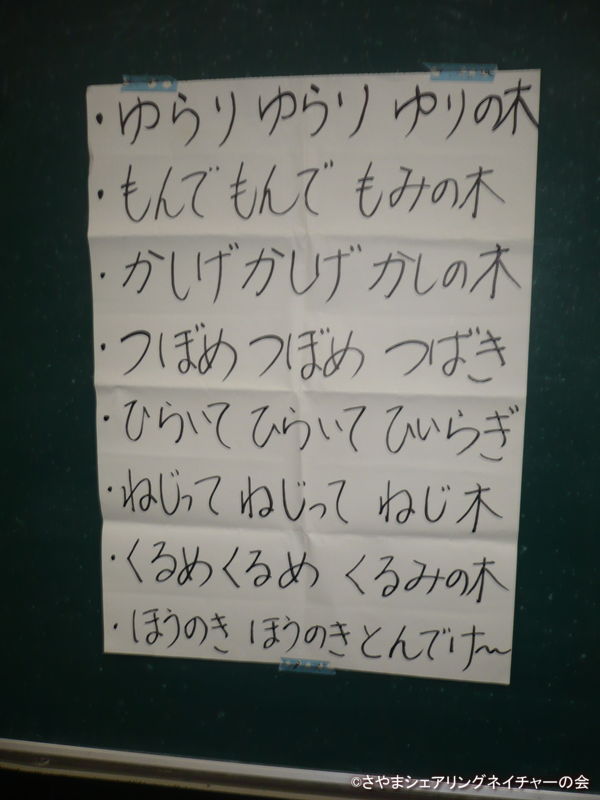 ・ゆらり ゆらり ゆりの木
・もんで もんで もみの木
・かしげ かしげ かしの木
・つぼめ つぼめ つばき
・ひらいて ひらいて ひいらぎ
・ねじって ねじって ねじ木
・くるめ くるめ くるみの木
・ほうのき ほうのき とんでけ〜
©さやまシェアリングネイチャーの会